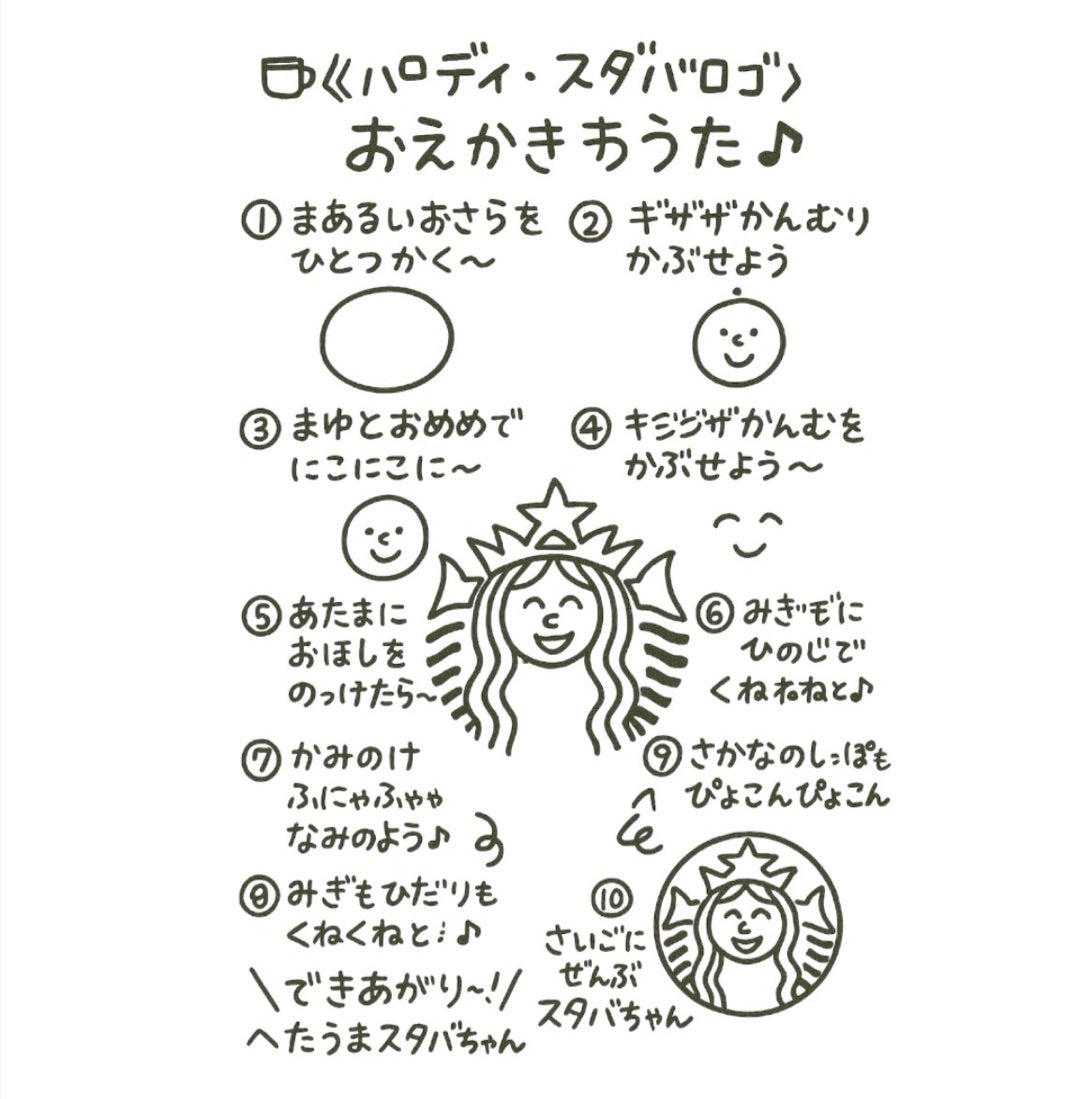 《パロディ・スタバロゴ〉
おえかきちうた♪
① まあるいおさらを
ひとつかく〜
② ギザザかんむり
かぶせよう
③ まゆとおめめで
にこにこに〜
④ キジジザかんむを
かぶせよう〜
⑤ あたまに
おほしを
のっけたら〜
⑥ みぎもに
ひのじで
くねねねと♪
⑦ かみのけ
ふにゃふゃゃ
なみのよう♪
⑧ みぎもひだりも
くねくねと⋮♪
⑨ さかなのしっぽも
ぴょこんぴょこん
⑩
さいごに
ぜんぶ
スタバちゃん
\できあがり〜!/
へたうまスタバちゃん